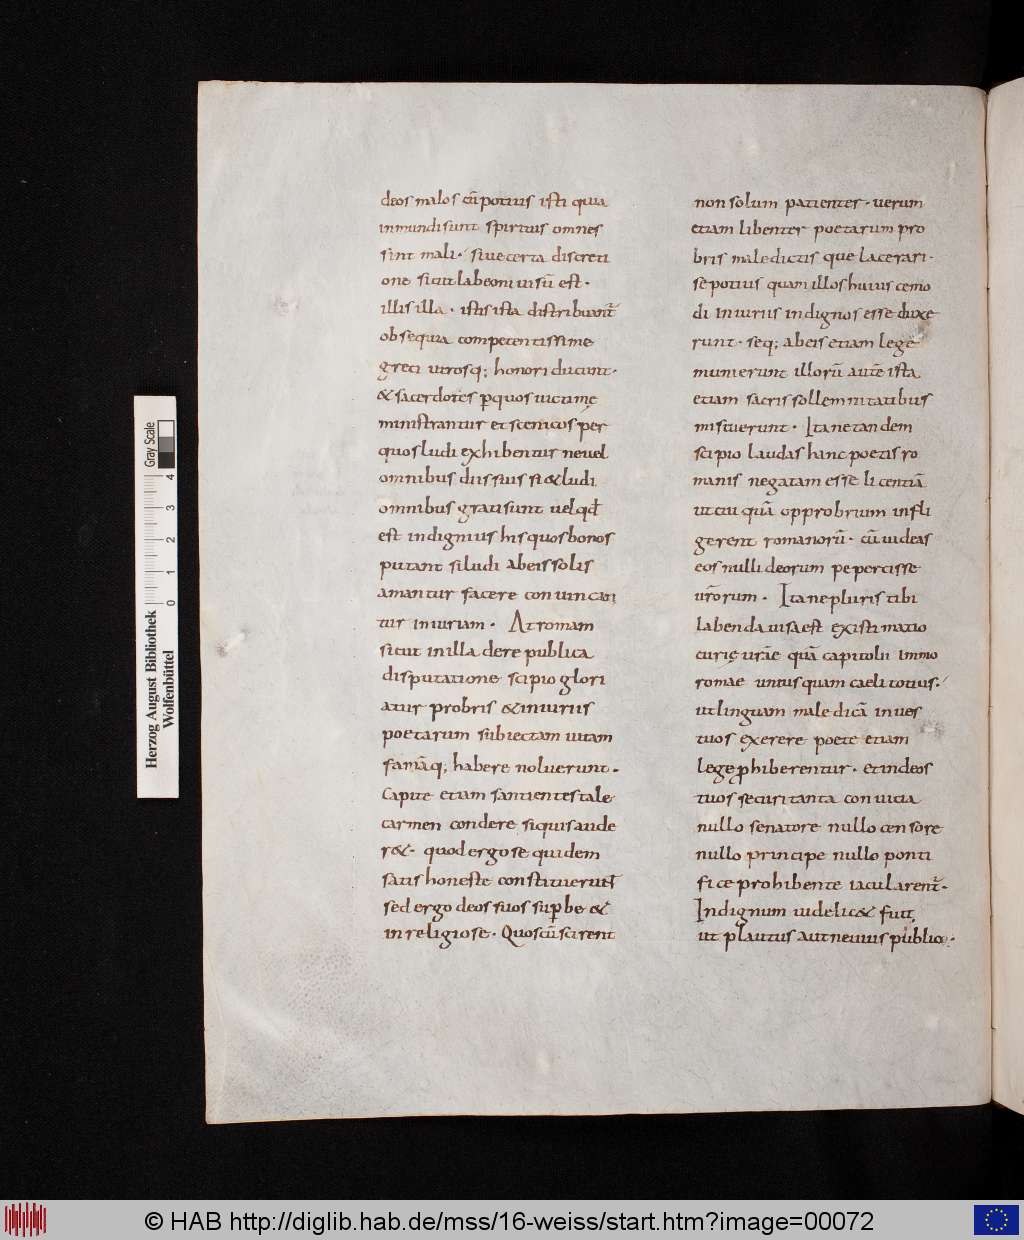 deos malos cū potius isti quia
inmundi sunt spiritus omnes
sint mali · siue certa discreti
one sicut labeoni uisū est ·
illis illa · istis ista distribuant̄
obsequia competentissime
greci utrosq; honori ducunt ·
& sacerdotes ꝑ quos uictimę
ministrantur et scenicos per
quos ludi exhibentur ne uel
omnibus diis suis si & ludi
omnibus grati sunt uel qđ
est indignius his quos bonos
putant si ludi ab eis solis
amantur facere conuincan
tur iniuriam · At romani
sicut in illa de re publica
disputatione scipio glori
atur probris & iniuriis
poetarum subiectam uitam
famāq; habere noluerunt ·
Capite etiam sancientes tale
carmen condere siquis aude
r& · quod ergo se quidem
satis honeste constituerunt
sed ergo deos suos suꝑbe &
inreligiose · Quos cū scirent
non solum patienter · uerum
etiam libenter poetarum pro
bris maledictis que lacerari ·
se potius quam illos huius cemo
di iniuriis indignos esse duxe
runt · seq; ab eis etiam lege
munierunt illorū autē ista
etiam sacris sollemnitatibus
miscuerunt · Itane tandem
scipio laudas hanc poetis ro
manis negatam esse licentiā
ut cui quā opprobrium infli
gerent romanorū · cū uideas
eos nulli deorum pepercisse
ur̄orum · Itane pluris tibi
labenda uisa est existimatio
curię urāe quā capitolii immo
romae unius quam caeli totius ·
ut linguam maledicā in ues
tuos exerere poete etiam
lege ꝓhiberentur · et in deos
tuos securi tanta conuicia
nullo senatore nullo censore
nullo principe nullo ponti
fice prohibente iacularent̄ ·
Indignum uidelic& fuit
ut plautus aut neuius publio ·
Gray Scale
0 1 2 3 4
Herzog August Bibliothek
Wolfenbüttel
© HAB http://diglib.hab.de/mss/16-weiss/start.htm?image=00072